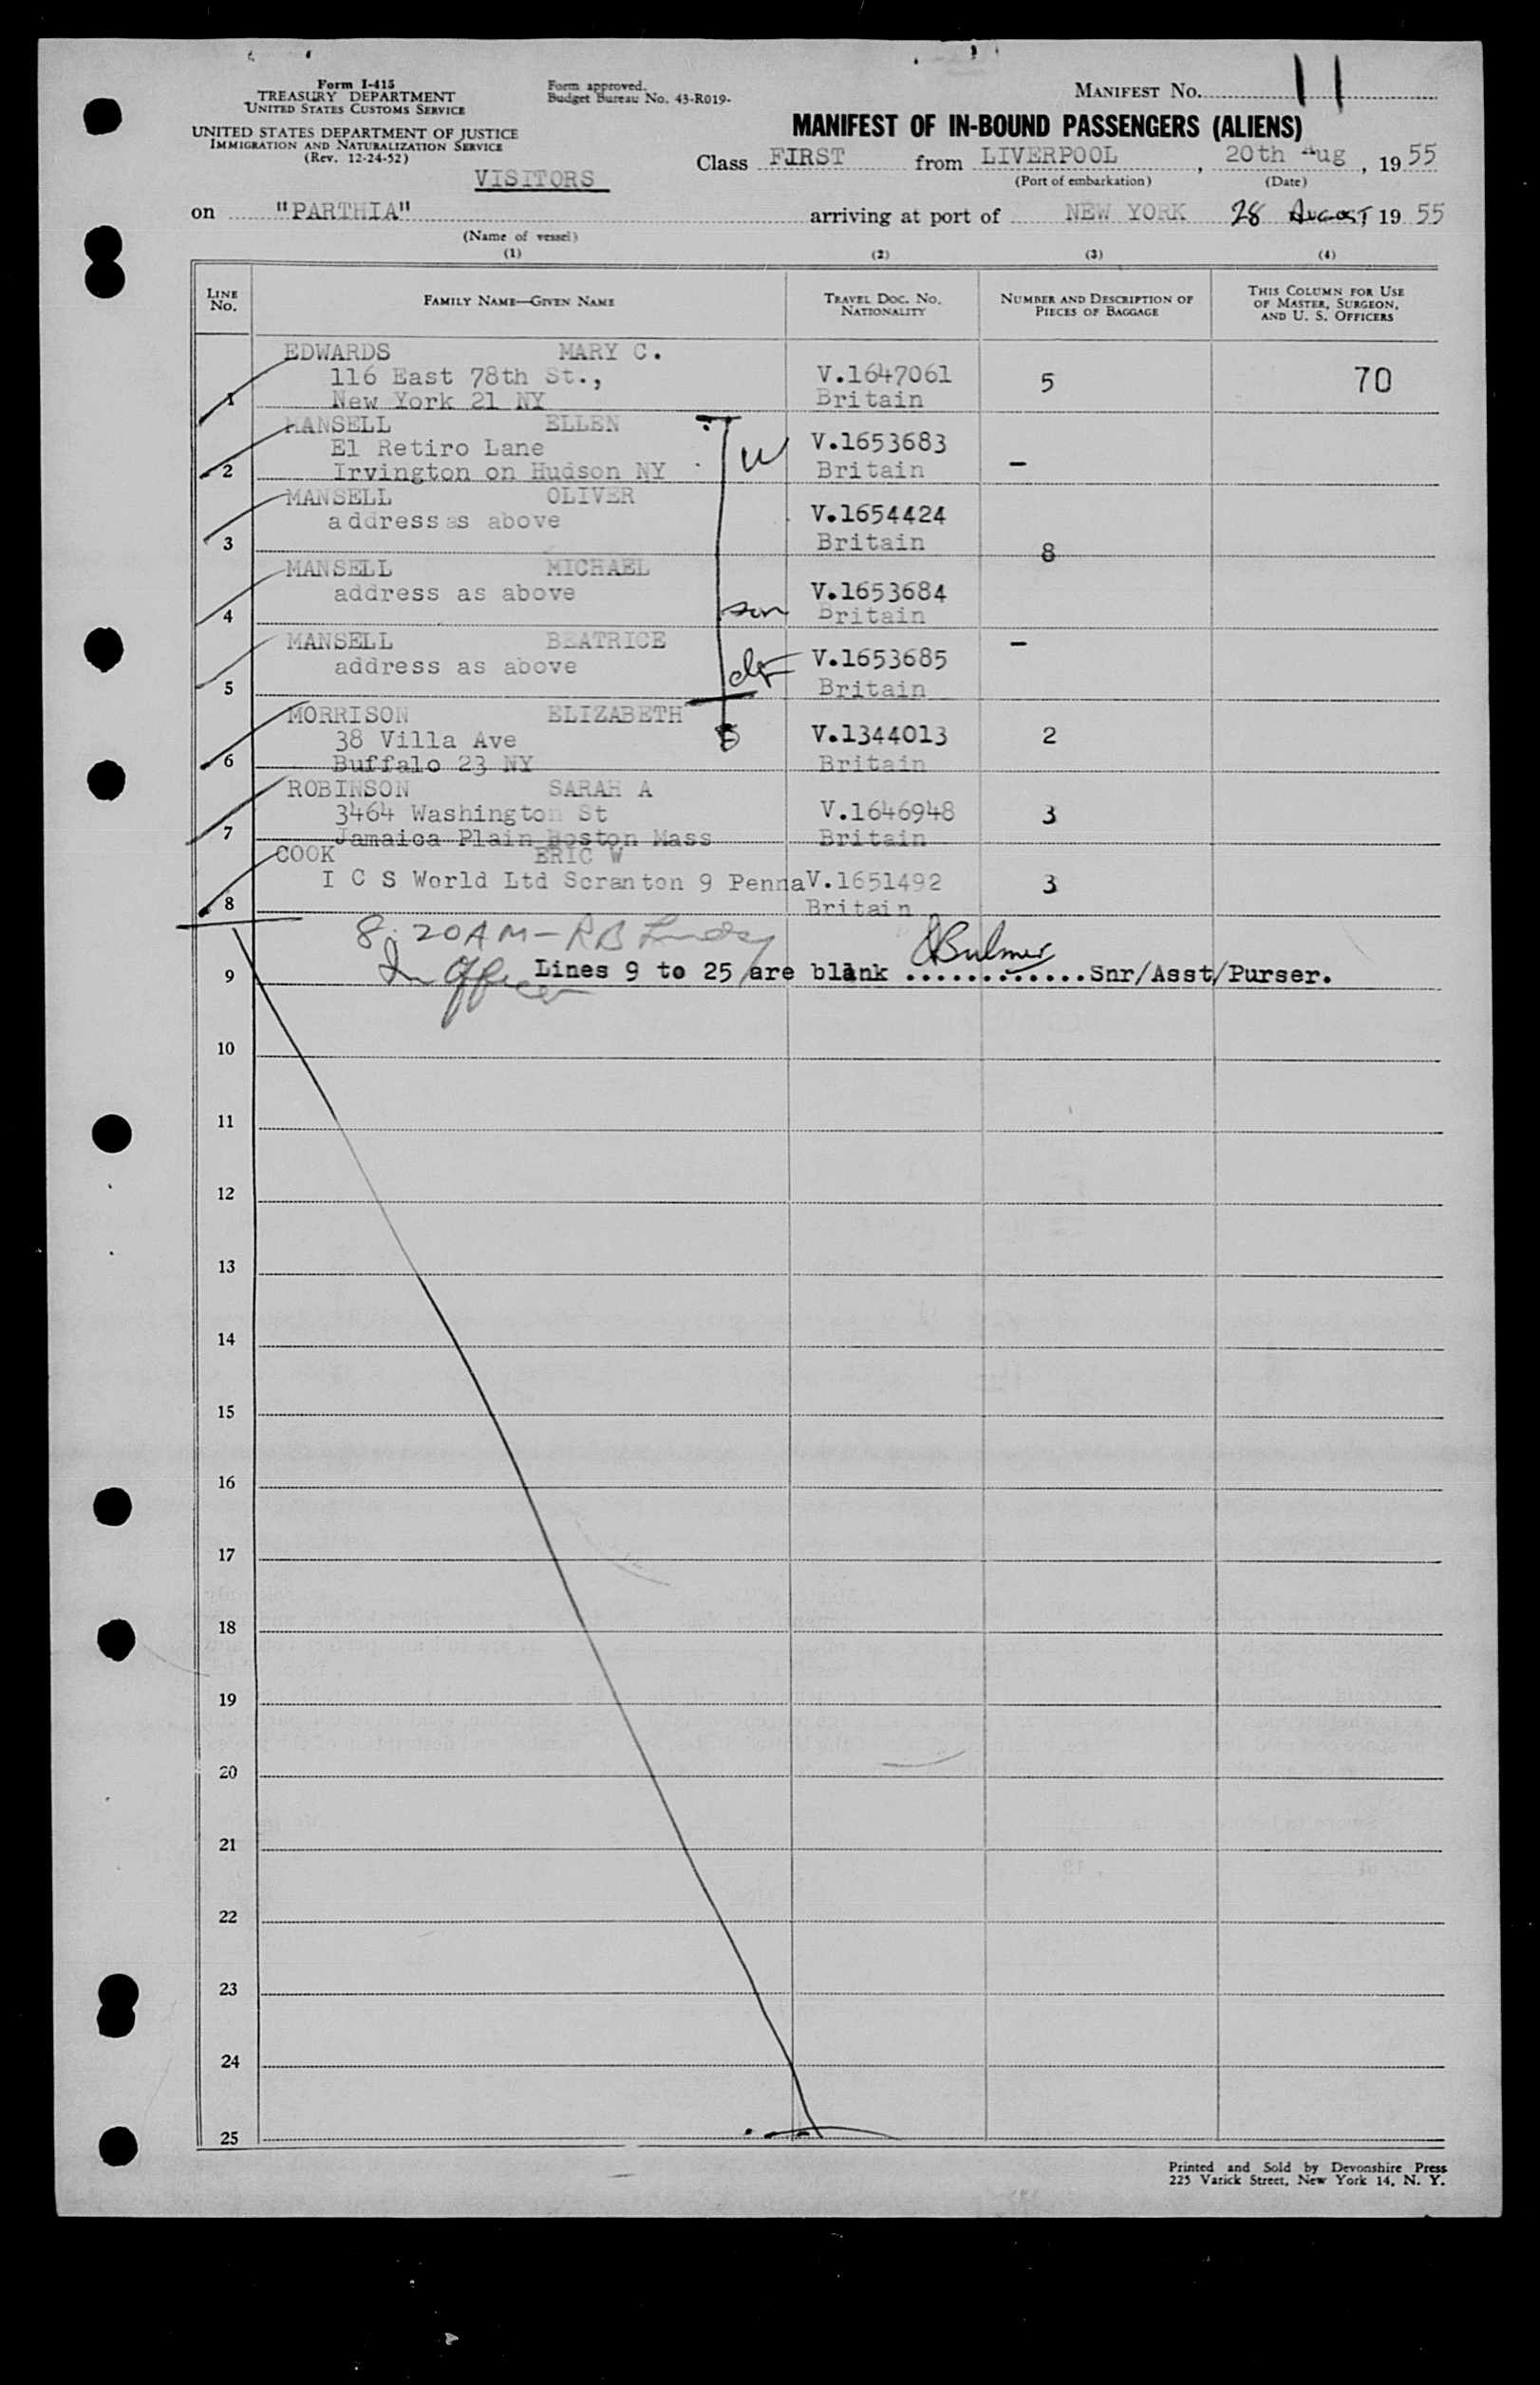 Form I-415
TREASURY DEPARTMENT
UNITED STATES CUSTOMS SERVICE
UNITED STATES DEPARTMENT OF JUSTICE
IMMIGRATION AND NATURALIZATION SERVICE
(Rev. 12-24-52)
Form approved.
Budget Bureau No. 43-R019-
MANIFEST NO. 11
MANIFEST OF IN-BOUND PASSENGERS (ALIENS)
VISITORS
Class FIRST from LIVERPOOL, 20th Aug, 1955
(Port of embarkation) (Date)
on "PARTHIA" arriving at port of NEW YORK 28 AUGUST 1955
(Name of vessel)
(1) (2) (3) (4)
LINE NO. FAMILY NAME—GIVEN NAME TRAVEL DOC. NO. NATIONALITY NUMBER AND DESCRIPTION OF PIECES OF BAGGAGE THIS COLUMN FOR USE OF MASTER, SURGEON, AND U. S. OFFICERS
EDWARDS MARY C.
116 East 78th St., V.1647061 5 70
1 New York 21 NY Britain
MANSELL ELLEN
El Retiro Lane W V.1653683
2 Irvington on Hudson NY Britain -
MANSELL OLIVER
address as above V.1654424
3 Britain 8
MANSELL MICHAEL
address as above V.1653684
4 son Britain
MANSELL BEATRICE -
address as above V.1653685
5 Britain
MORRISON ELIZABETH
38 Villa Ave 5 V.1344013 2
6 Buffalo 23 NY Britain
ROBINSON SARAH A
3464 Washington St V.1646948 3
7 Jamaica Plain Boston Mass Britain
COOK ERIC W
I C S World Ltd Scranton 9 Penna V.1651492 3
8 Britain
8:20AM - RB
9 Lines 9 to 25 are blank ............. Bulmer Snr/Asst/Purser.
In Officer
10
11
12
13
14
15
16
17
18
19
20
21
22
23
24
25
Printed and Sold by Devonshire Press
225 Varick Street, New York 14, N. Y.